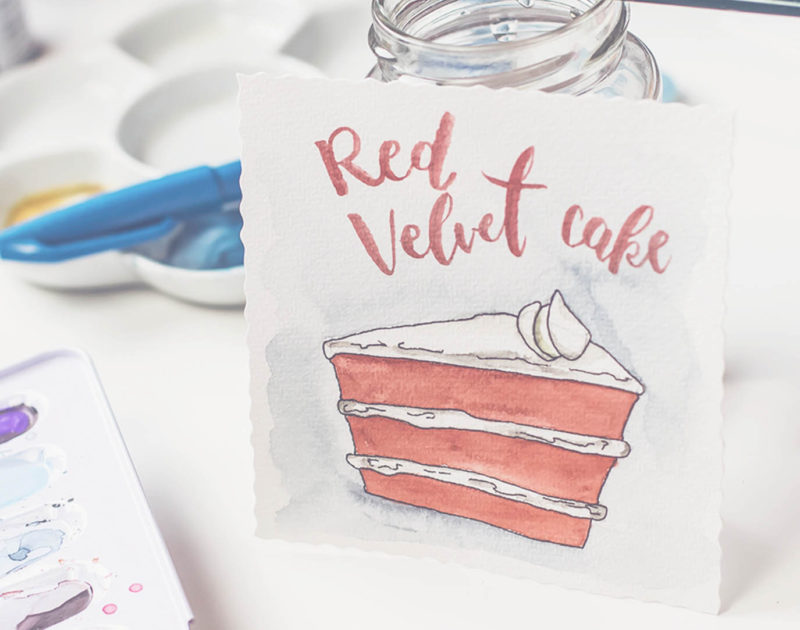 Red
Velvet cake